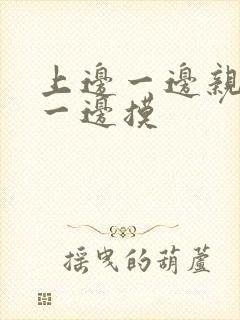 上邊一邊親
一邊摸
搖曳的葫蘆